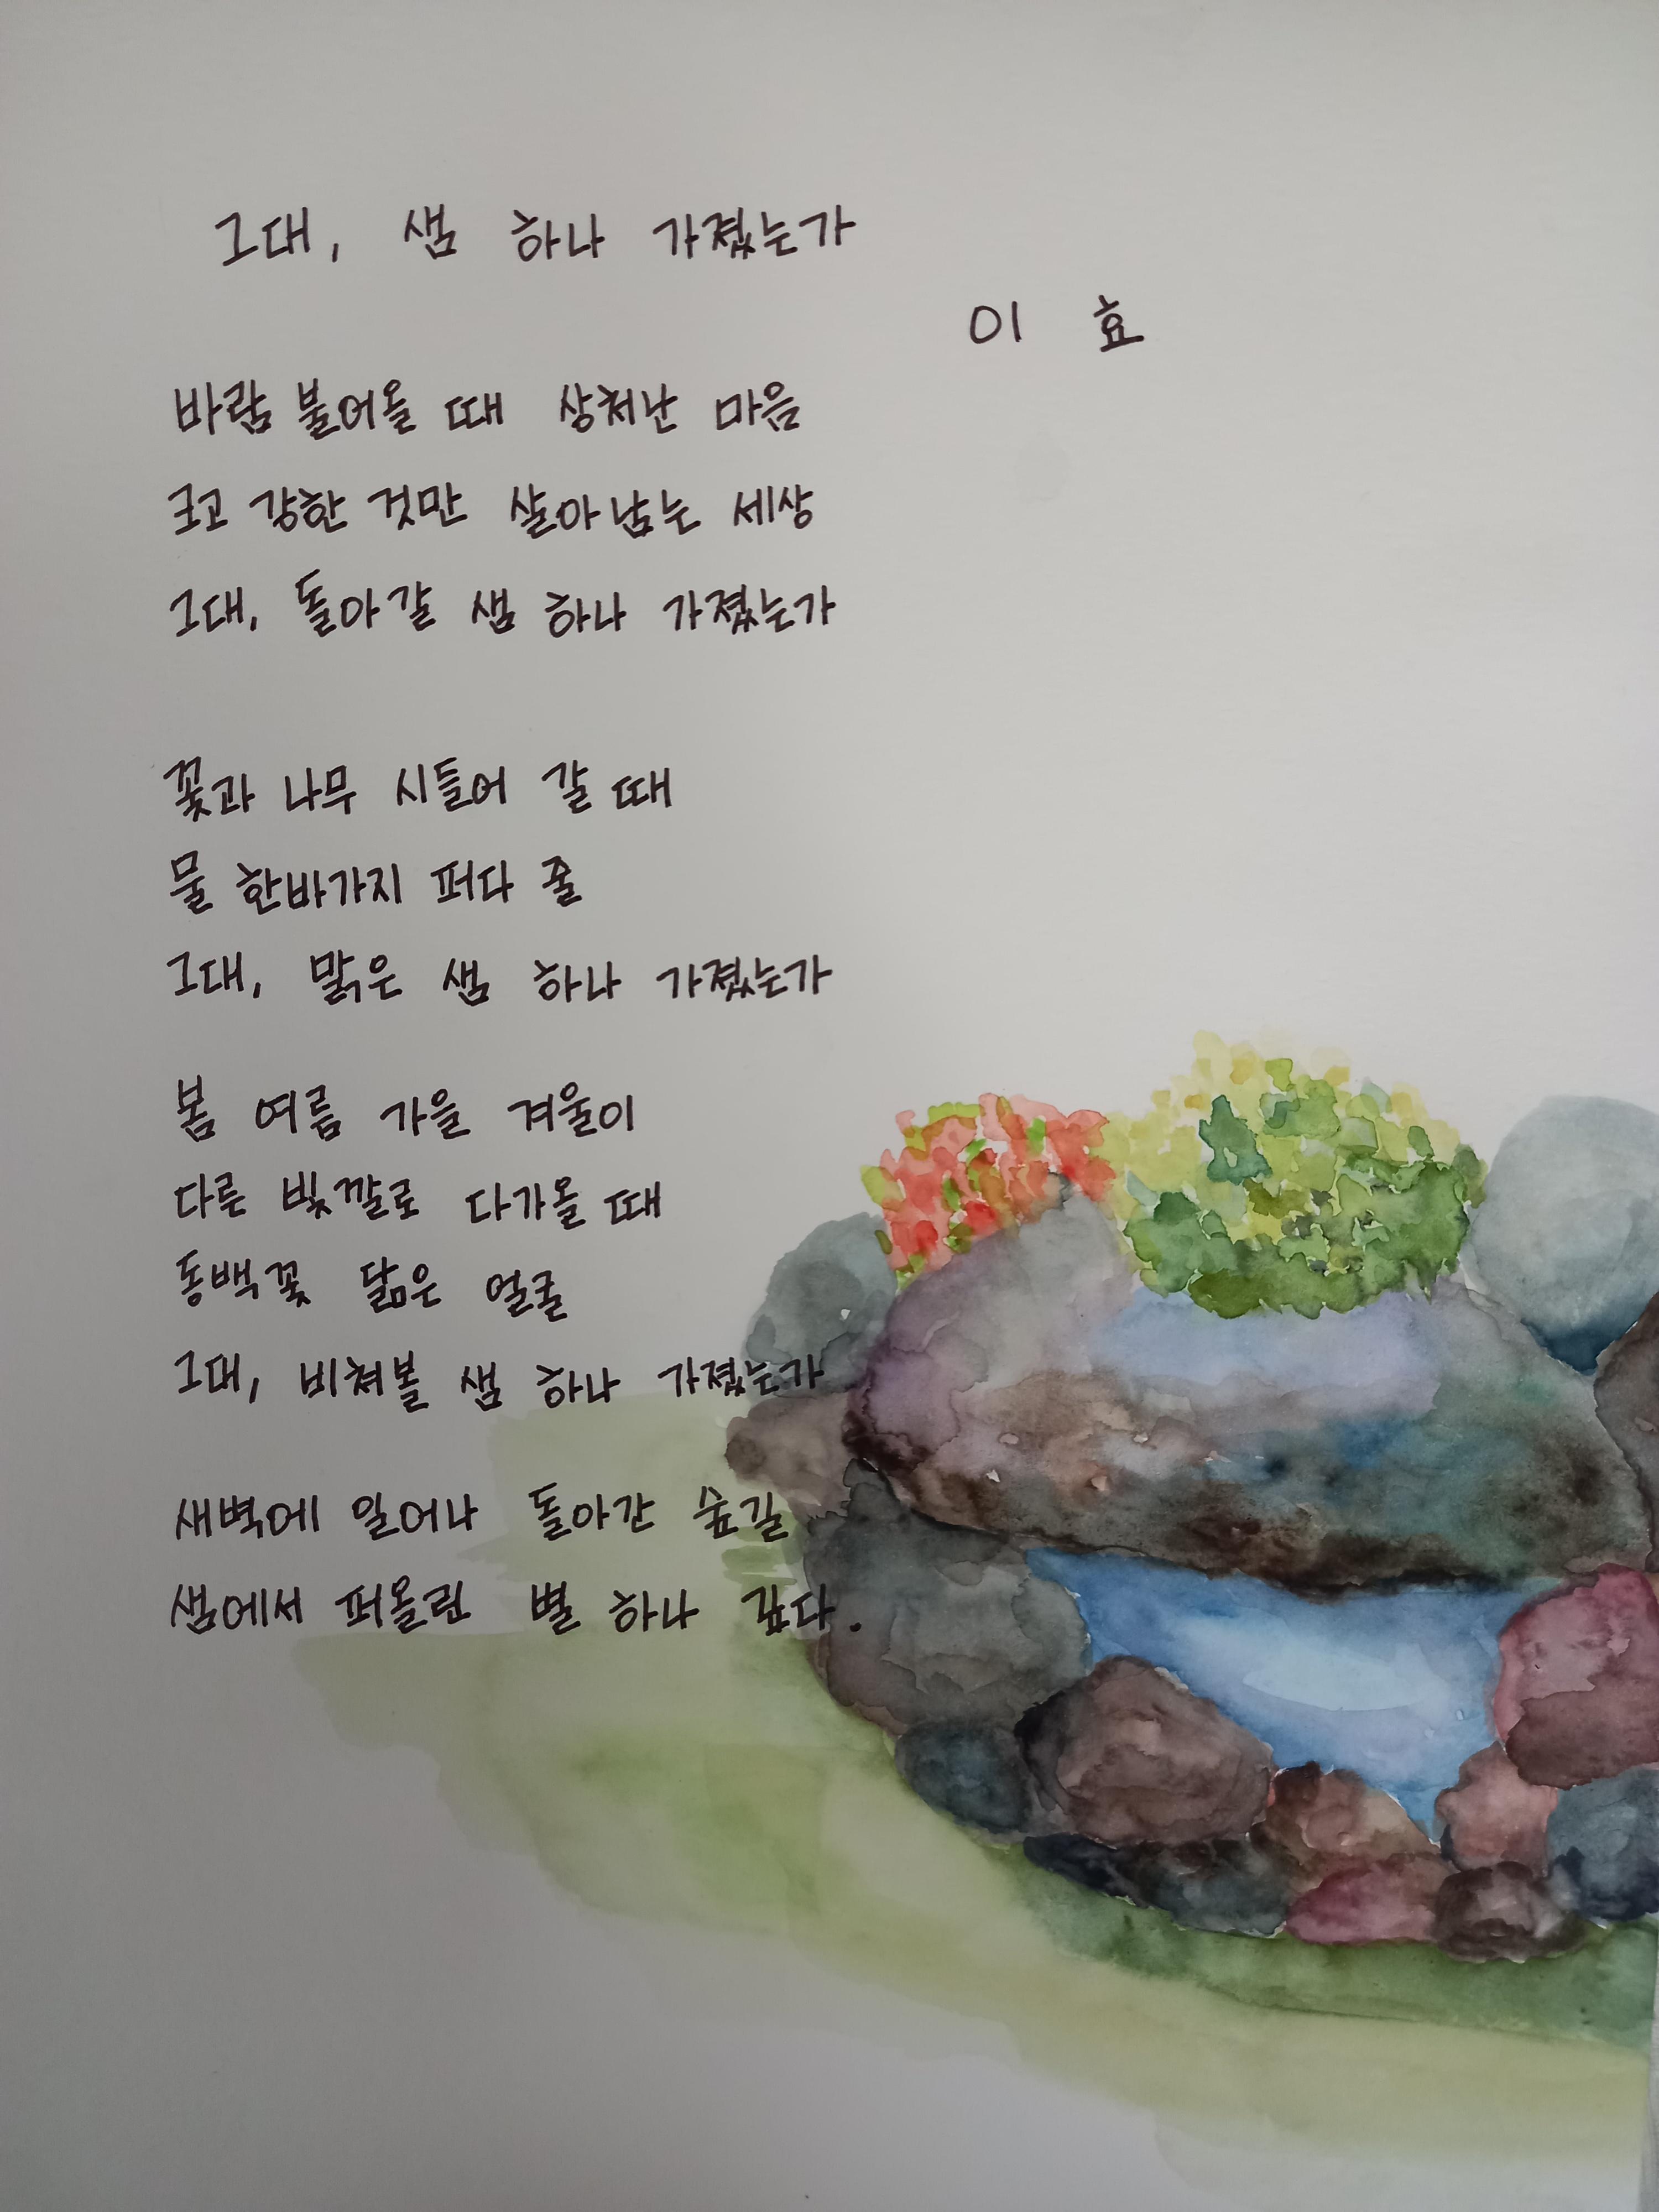 그대, 샘 하나 가졌는가
이 효
바람 불어올 때 상처난 마음
크고 강한 것만 살아남는 세상
그대, 돌아갈 샘 하나 가졌는가
꽃과 나무 시들어 갈 때
물 한바가지 퍼다 줄
그대, 맑은 샘 하나 가졌는가
봄 여름 가을 겨울이
다른 빛깔로 다가올 때
동백꽃 닮은 얼굴
그대, 비쳐볼 샘 하나 가졌는가
새벽에 일어나 돌아간 숲길
샘에서 퍼올린 별 하나 깊다.